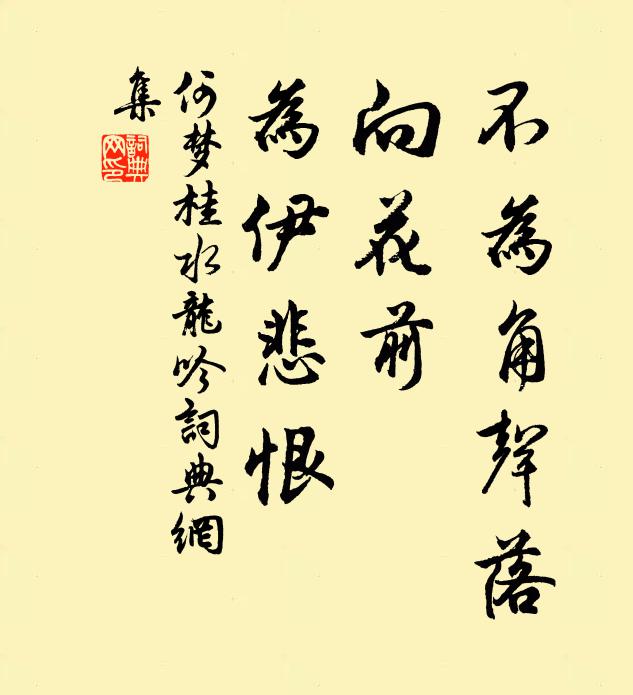 不為角聲落
向花前
為伊悲恨
何梦桂水龍吟詞典網
集
詞典
网印